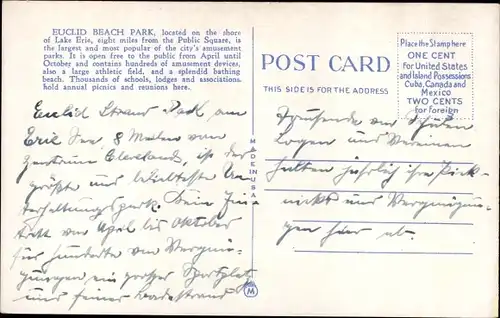 EUCLID BEACH PARK, located on the shore
of Lake Erie, eight miles from the Public Square, is
the largest and most popular of the city's amusement
parks. It is open free to the public from April until
October and contains hundreds of amusement devices,
also a large athletic field, and a splendid bathing
beach. Thousands of schools, lodges and associations
hold annual picnics and reunions here.
Euclid Strand Park, am
Erie See 8 Meilen vom
Zentrum Clevelands, ist der
größte und beliebteste Un-
terhaltungspark. Sein
von April bis Oktober
für hunderte von Vergnü-
gungen ein großer Sportplatz
und feiner Badestrand
MADE IN USA
M
POST CARD
THIS SIDE IS FOR THE ADDRESS
Place the Stamp here
ONE CENT
for United States
and Island Possessions
Cuba, Canada and
Mexico
TWO CENTS
for Foreign
Tausende von Schulen
Logen und Vereinen
halten jährlich ihre Pick-
nickt und Vergnügun-
gen hier ab.